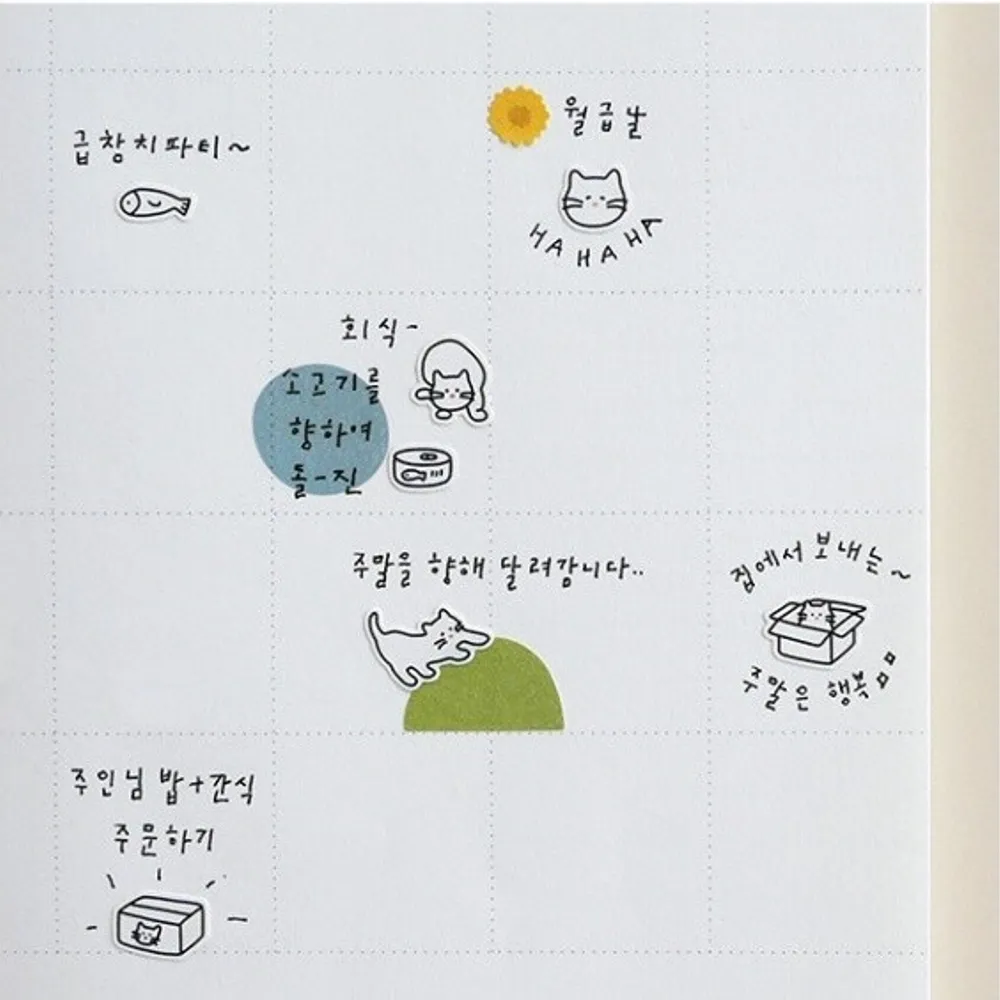 급 창치파티~
월급날
HA HA HA
회식-
소고기를
향하여
돌-진
주말을 향해 달려갑니다..
집에서 보내는~
주말은 행복
주인님 밥+간식
주문하기